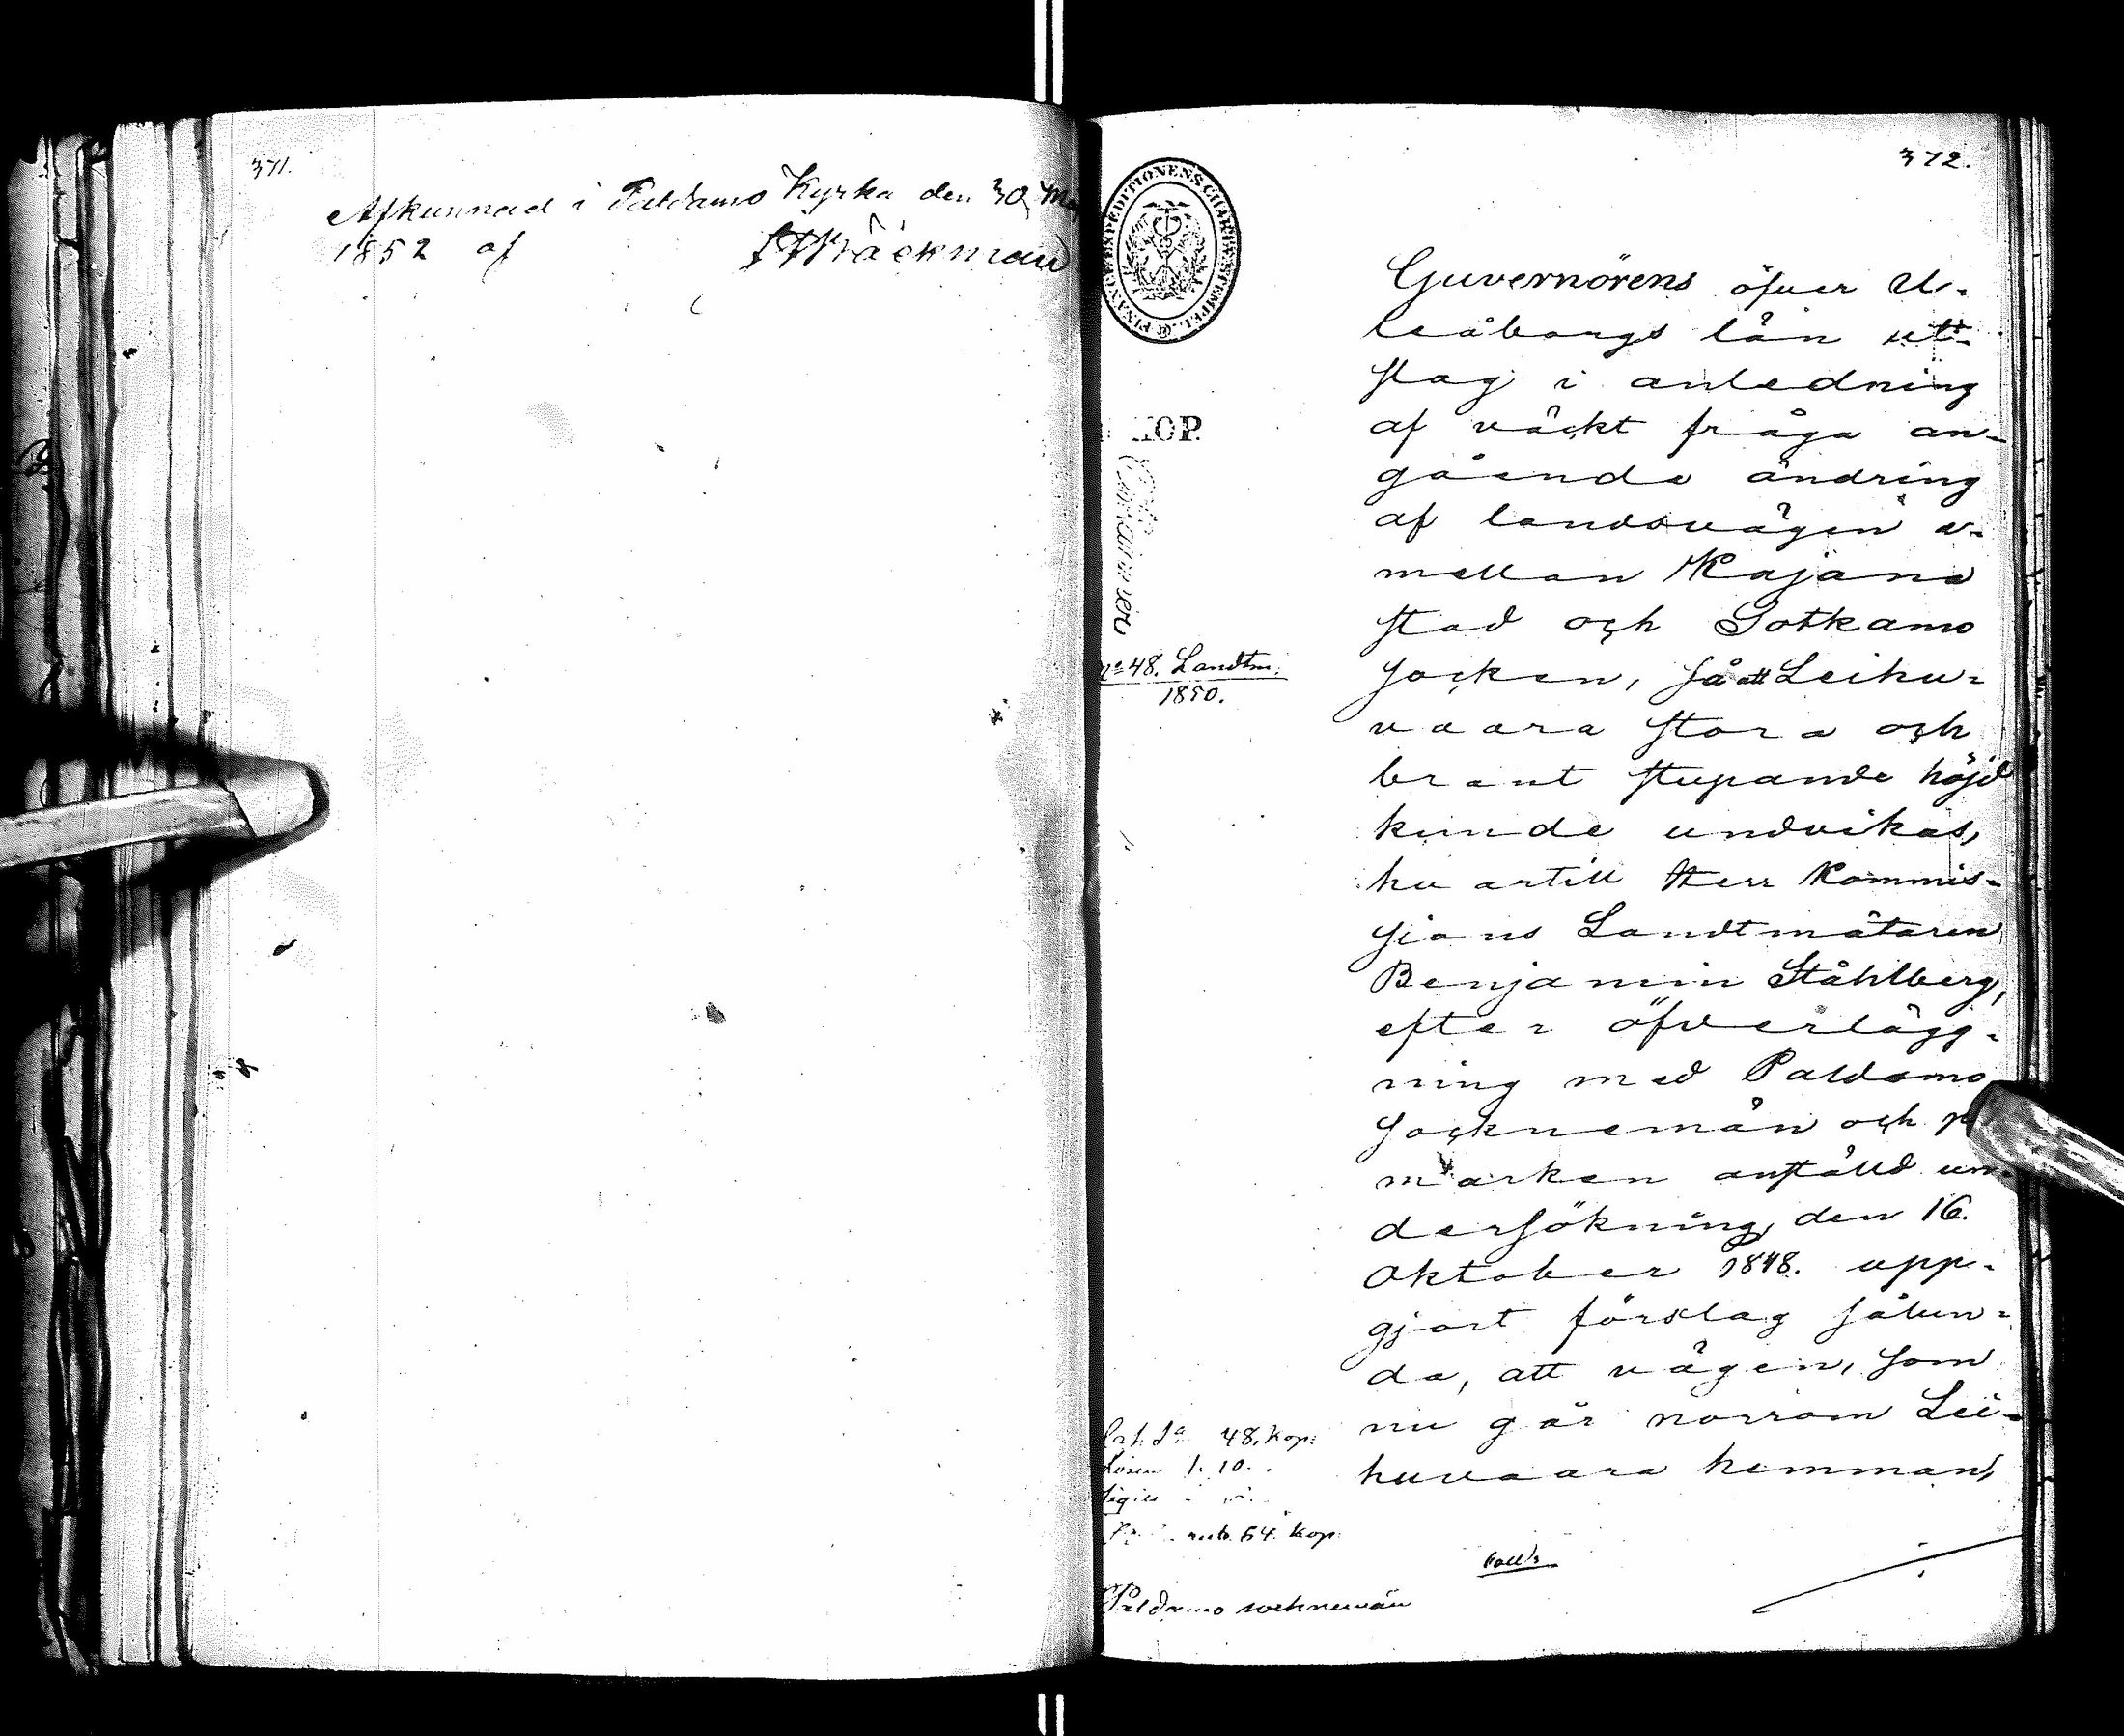 371.
Afkunnad i Paldamo Kyrka den 30 Maj
1852 af
372.
FINANCE EXPEDITIONENS CHARTÆ STEMPEL
KOP.
Guvernörens öfver U-
leåborgs län ut-
slag i anledning
af väckt fråga an-
gående ändring
af landsvägen e-
mellan Kajana
stad och Sotkamo
socken, så att Leihu-
vaara stora och
brant stupande höjd
kunde undvikas,
hvartill Herr Kommis-
sions Landtmätaren
Benjamin Ståhlberg,
efter öfverlägg-
ning med Paldamo
socknemän och på
marken anställd un-
dersökning, den 16.
Oktober 1848. upp-
gjort förslag sålun-
da, att vägen, som
nu går norrom Lei-
huvaara hemman,
No 48. Landtm.
1850.
48. kop:
Lösen 1. 10.
rub. 64. kop
Paldamo socknemän